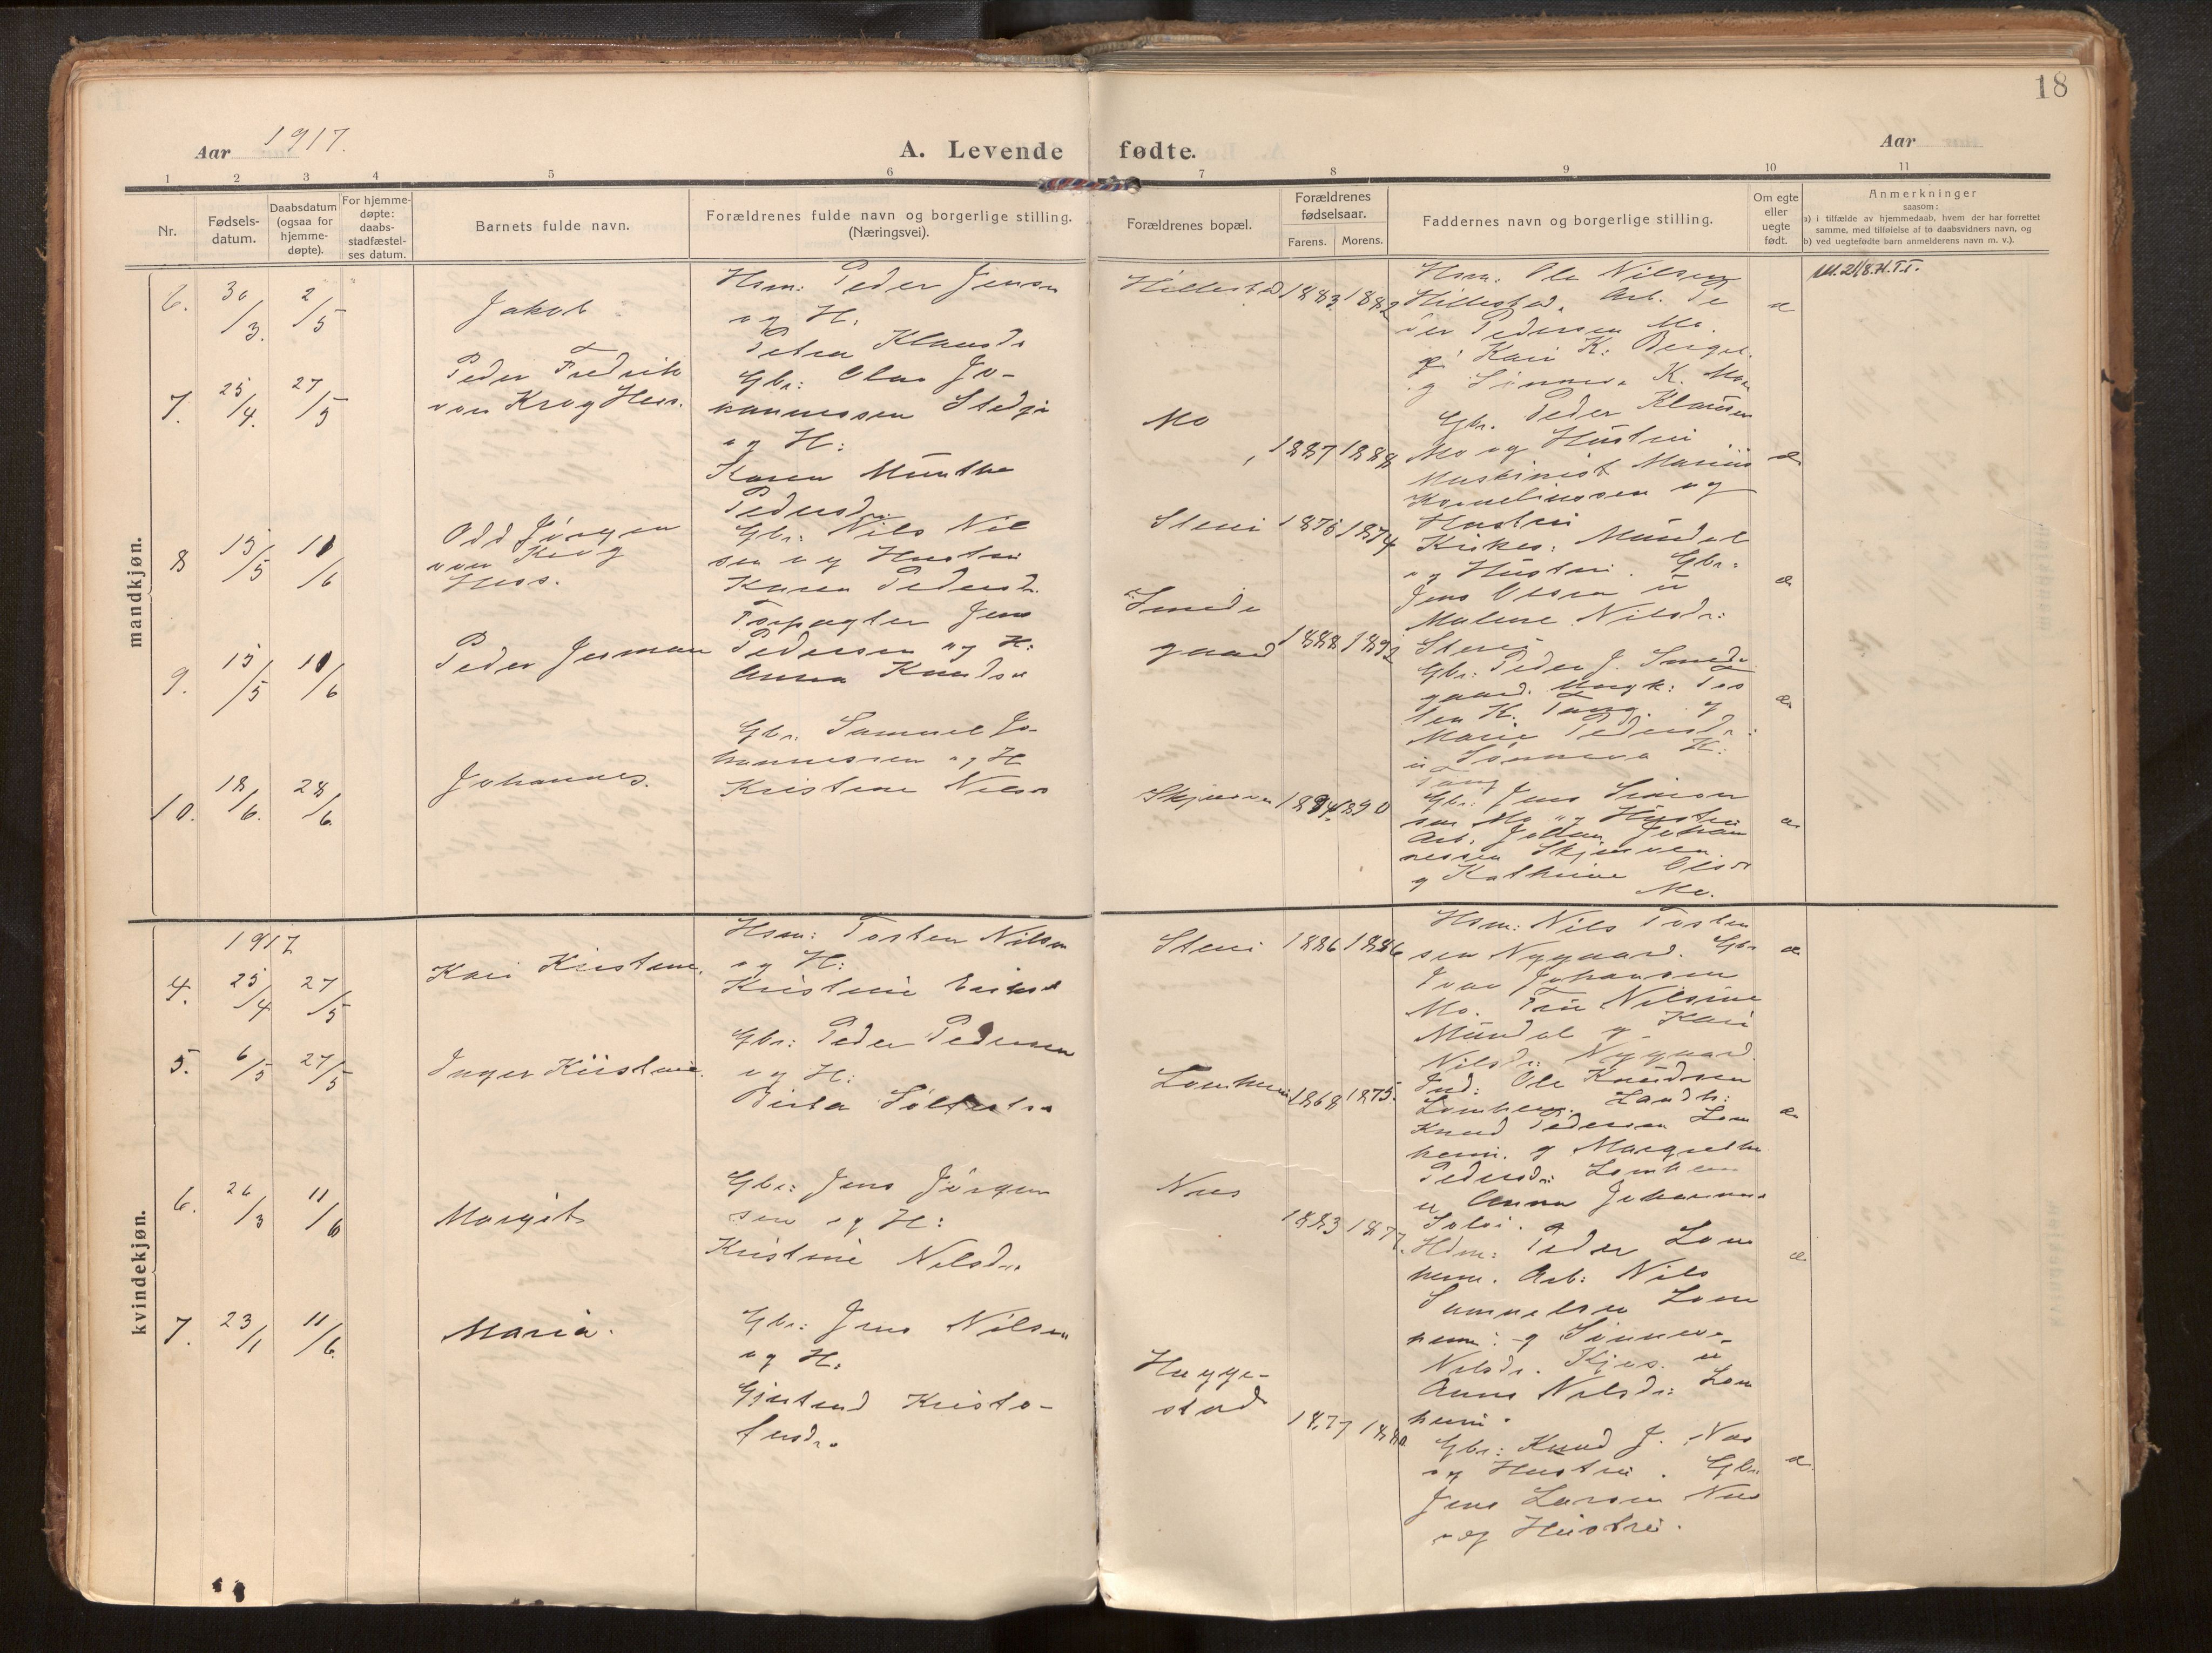 18
Aar 1917.
A. Levende fødte.
Aar
1 2 3 4 5 6 7 8 9 10 11
Nr.
Fødsels-
datum.
Daabsdatum
(ogsaa for
hjemme-
døpte).
For hjemme-
døpte:
daabs-
stadfæstel-
ses datum.
Barnets fulde navn.
Forældrenes fulde navn og borgerlige stilling.
(Næringsvei).
Forældrenes bopæl.
Forældrenes
fødselsaar.
Farens. Morens.
Faddernes navn og borgerlige stilling.
Om egte
eller
uegte
født.
Anmerkninger
saasom:
a) i tilfælde av hjemmedaab, hvem der har forrettet
samme, med tilføielse af to daabsvidners navn, og
b) ved uegtefødte barn anmelderens navn m. v.).
mandkjøn.
6. 30/3. 2/5
Jakob
Hsm: Peder Jensen
og H.
Petra Klausdr
Hillestad 1883 1882
Hsm: Ole Nilsen
Hillestad. Arb. Pe
der Pedersen Mo.
Kari K. Berge.
og Sinneva K. Moe
æ
7. 25/4. 27/5
Peder Fredrik
von Krog Hess.
Gbr: Olav Jo-
hannessen Stedje
og H:
Karen Munthe
Pedersdr.
Mo
1887 1888
Gbr. Peder Klausen
Mo og Hustru
Maskinist Marius
Korneliussen og
Hustru
æ
8 15/5 10/6
Odd Jørgen
von Krog
Hess.
Gbr: Nils Nil
sen og Hustru
Karen Pedersdr.
Steni 1875 1874
Kirkes: Mundal
og Hustru. Gbr:
Jens Olsen u
Malene Nilsdr:
Steni
æ
9. 15/5 10/6
Peder Jerman
Forpagter Jens
Pedersen og H:
Anna Knudsdr
Smede
gaard 1888 1892
Gbr: Peder J. Smede
gaard. Ungk: Tos
ten K. Tang. og
Marie Pedersdr:
u Sønneva K:
Tang
æ
10. 18/6. 28/6.
Johannes.
Gbr. Samuel Jo-
hannessen og H
Kristine Nilsdr
Skjerven 1894 1890
Gbr: Jens Simon
sen Mo og Hustru
Arb. Johan Johan
nessen Skjerven.
og Kathrine Olsdr
Mo.
kvindekjøn.
1917
4. 25/4 27/5
Kari Kirstine.
Hsm: Torsten Nilsen
og H:
Kristine Eriksd
Steni 1886 1886
Hsm: Nils Tosten
sen Nygaard. Gbr
Ivar Johansen
Mo. Fru Nilsine
Mundal og Kari
Nilsdr: Nygaard.
æ
5. 6/5 27/5
Inger Kirstine.
Gbr: Peder Pedersen
og H:
Brita Sølfestdr
Lomheim 1868 1875.
Ind: Ole Knudsen
Lomheim. Landh:
Knud Pedersen Lom
heim. og Margrethe
Pedersdr: Lomheim
u Anna Johannes
æ
6. 26/3 11/6
Margit
Gbr: Jens Jørgen
sen og H:
Kristine Nilsdr.
Nus
1883 1877.
Hsm: Peder Lom
heim. Arb: Nils
Samuelsen Lom
heim: og Sinneva
Nilsdr. Kjos. u
Anne Nilsdr: Lom
heim.
æ
7. 23/1 11/6.
Maria.
Gbr: Jens Nilsen
og H:
Gjertrud Kristo-
fersdr.
Hegge-
stad
1877 1880
Gbr: Knud J. Nes
og Hustru. Gbr:
Jens Larsen Nes
og Hustru.
æ